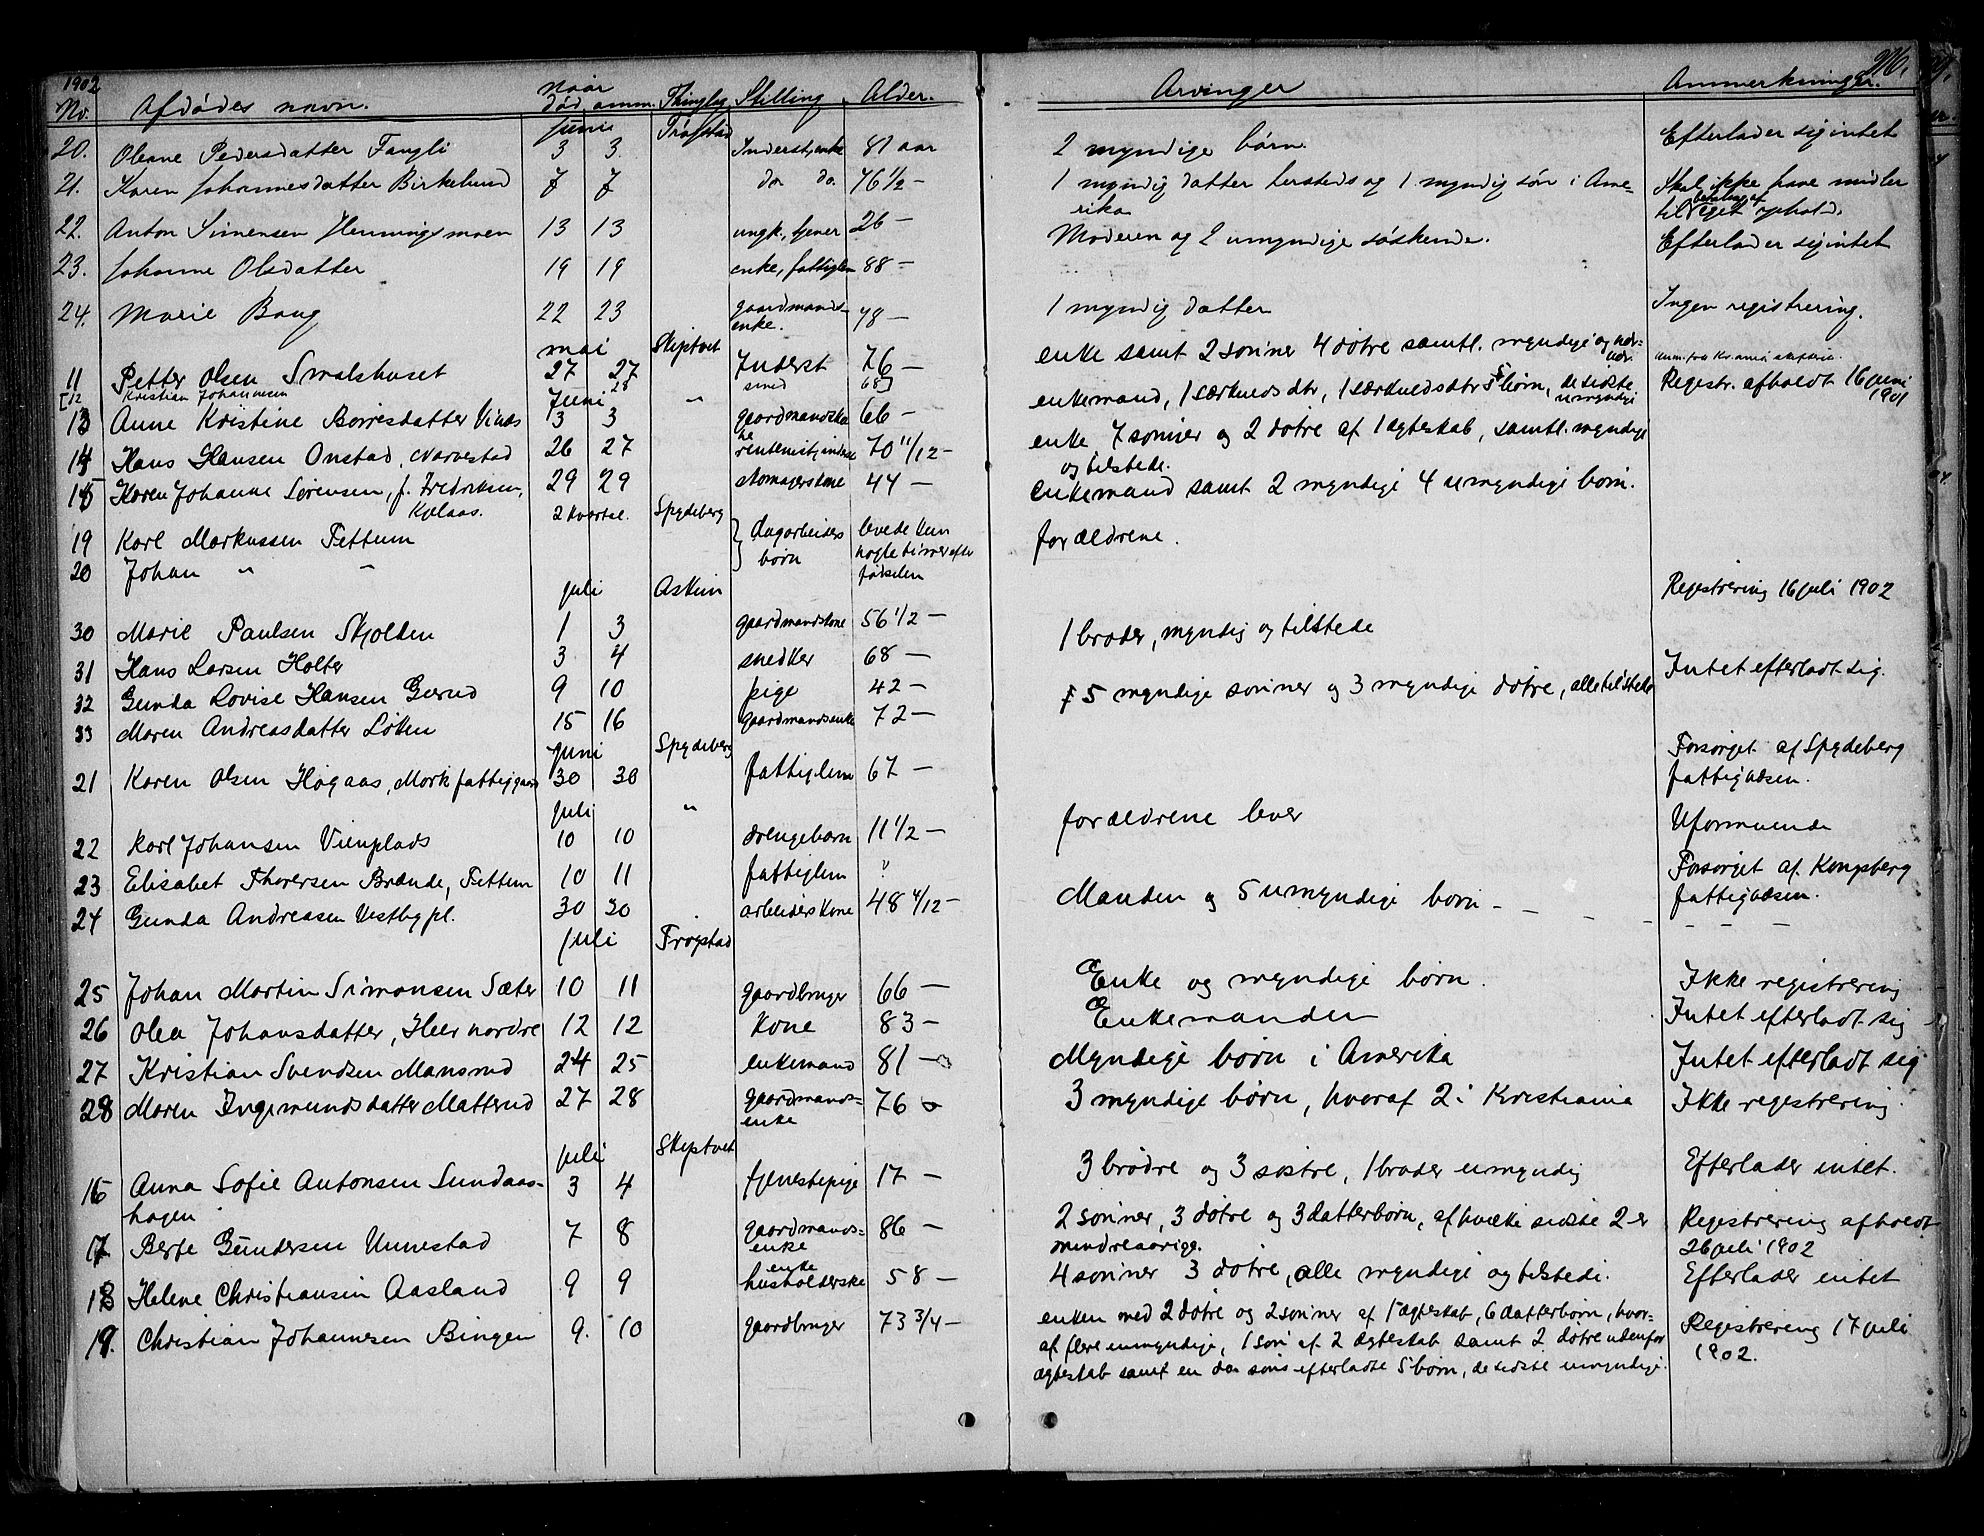 1902
No. Afdødes navn. Naar Død anm. Thinglag Stilling Alder. Arvinger Anmerkninger.
juni Trøgstad
20. Oleane Pedersdatter Fangli 3 3. Inderstenke 81 aar 2 myndige børn. Efterlader sig intet
21. Karen Johannesdatter Birkelund 7 7 do do. 76 1/2 — 1 myndig datter hersteds og 1 myndig søn i Ame-
rika Skal ikke have midler
til betaling af eget ophold.
22. Anton Simensen Henningsmoen 13 13 ungk., tjener 26 — Moderen og 2 umyndige søskende. Efterlader sig intet
23. Johanne Olsdatter 19 19 enke, fattiglem 88 —
24. Marie Baug 22 23 gaardmands-
enke. 78 — 1 myndig datter Ingen registrering.
mai Skiptvet
11 Petter Olsen Smalshuset 27 27 Inderst 76 — enke samt 2 sønner 4 døtre samtl. myndige og nær-
vær.
[12 Kristian Johannesen 28 smed 68]
Juni "
13 Anne Kristine Børresdatter Vinæs 3 3 gaardmandsko
ne 66 — enkemand, 1 særkuldsdtr, 5 børn, de sidste
umyndige Registr. afholdt 16 juni
1901
14 Hans Hansen Onstad, Narvestad 26 27 rentenist, inderst 70 11/12 — enke 7 sønner og 2 døtre af 1 ægteskab, samtl. myndige
og tilstede.
15 Karen Johanne Sørensen, f. Fredriksen,
Kolaas. 29 29 skomagerskone 44 — enkemand samt 2 myndige 4 umyndige børn.
2 Kvartal. Spydeberg
19 Karl Markussen Fettum dagarbeiders
børn levede kun
nogle timer efter
fødselen forældrene.
20 Johan " "
juli Askim
30 Marie Paulsen Skjolden 1 3 gaardmandskone 56 1/2 — Registrering 16 juli 1902
31 Hans Larsen Holter 3 4 snedker 68 — 1 broder, myndig og tilstede
32 Gunda Lovise Hansen Gerud 9 10 pige 42 — Intet efterladt sig.
33 Maren Andreasdatter Løken 15 16 gaardmandsenke 72 — 5 myndige sønner og 3 myndige døtre, alle tilstede
Juni Spydeberg
21 Karen Olsen Høgaas, Mørk fattiggaard 30 30 fattiglem 67 — Forsørget af Spydeberg
fattigvæsen.
juli "
22 Karl Johansen Vienplads 10 10 drengebarn 11 1/2 — forældrene lever Uformuende
23 Elisabet Thoresen Brænde, Fettum 10 11 fattiglem " Forsørget af Kongsberg
fattigvæsen.
24 Gunda Andreasen Vestbypl. 30 30 arbeiderskone 48 4/12 — Manden og 5 umyndige børn — — — — — — —
juli Trøgstad
25 Johan Martin Simonsen Sæter 10 11 gaardbruger 66 — Enke og myndige børn. Ikke registrering
26 Olea Johansdatter, Heer nordre 12 12 Kone 83 — Enkemanden Intet efterladt sig
27 Kristian Svendsen Mansrud 24 25 enkemand 81 — Myndige børn i Amerika Intet efterladt sig
28 Maren Ingemundsdatter Matterud 27 28 gaardmands-
enke 76 3 myndige børn, hvoraf 2 i Kristiania Ikke registrering
juli Skiptvet
16 Anna Sofie Antonsen Sundaas-
hagen 3 4 tjenestepige 17 — 3 brødre og 3 søstre, 1 broder umyndig Efterlader intet.
17 Berte Gundersen Unnestad 7 8 gaardmands-
enke 86 — 2 sønner, 3 døtre og 3 datterbørn, af hvilke sidste 2 er
mindreaarige. Registrering afholdt
26 juli 1902
18 Helene Christiansen Aasland 9 9 enke
husholderske 58 — 4 sønner 3 døtre, alle myndige og tilstede. Efterlader intet
19. Christian Johannesen Bingen 9. 10 gaardbruger 73 3/4 — enken med 2 døtre og 2 sønner af 1 ægteskab, 6 datterbørn, hvor-
af flere umyndige, 1 søn af 2 ægteskab samt 2 døtre udenfor
ægteskab samt en søns efterladte 5 børn, de sidste umyndige. Registrering 17 juli
1902.